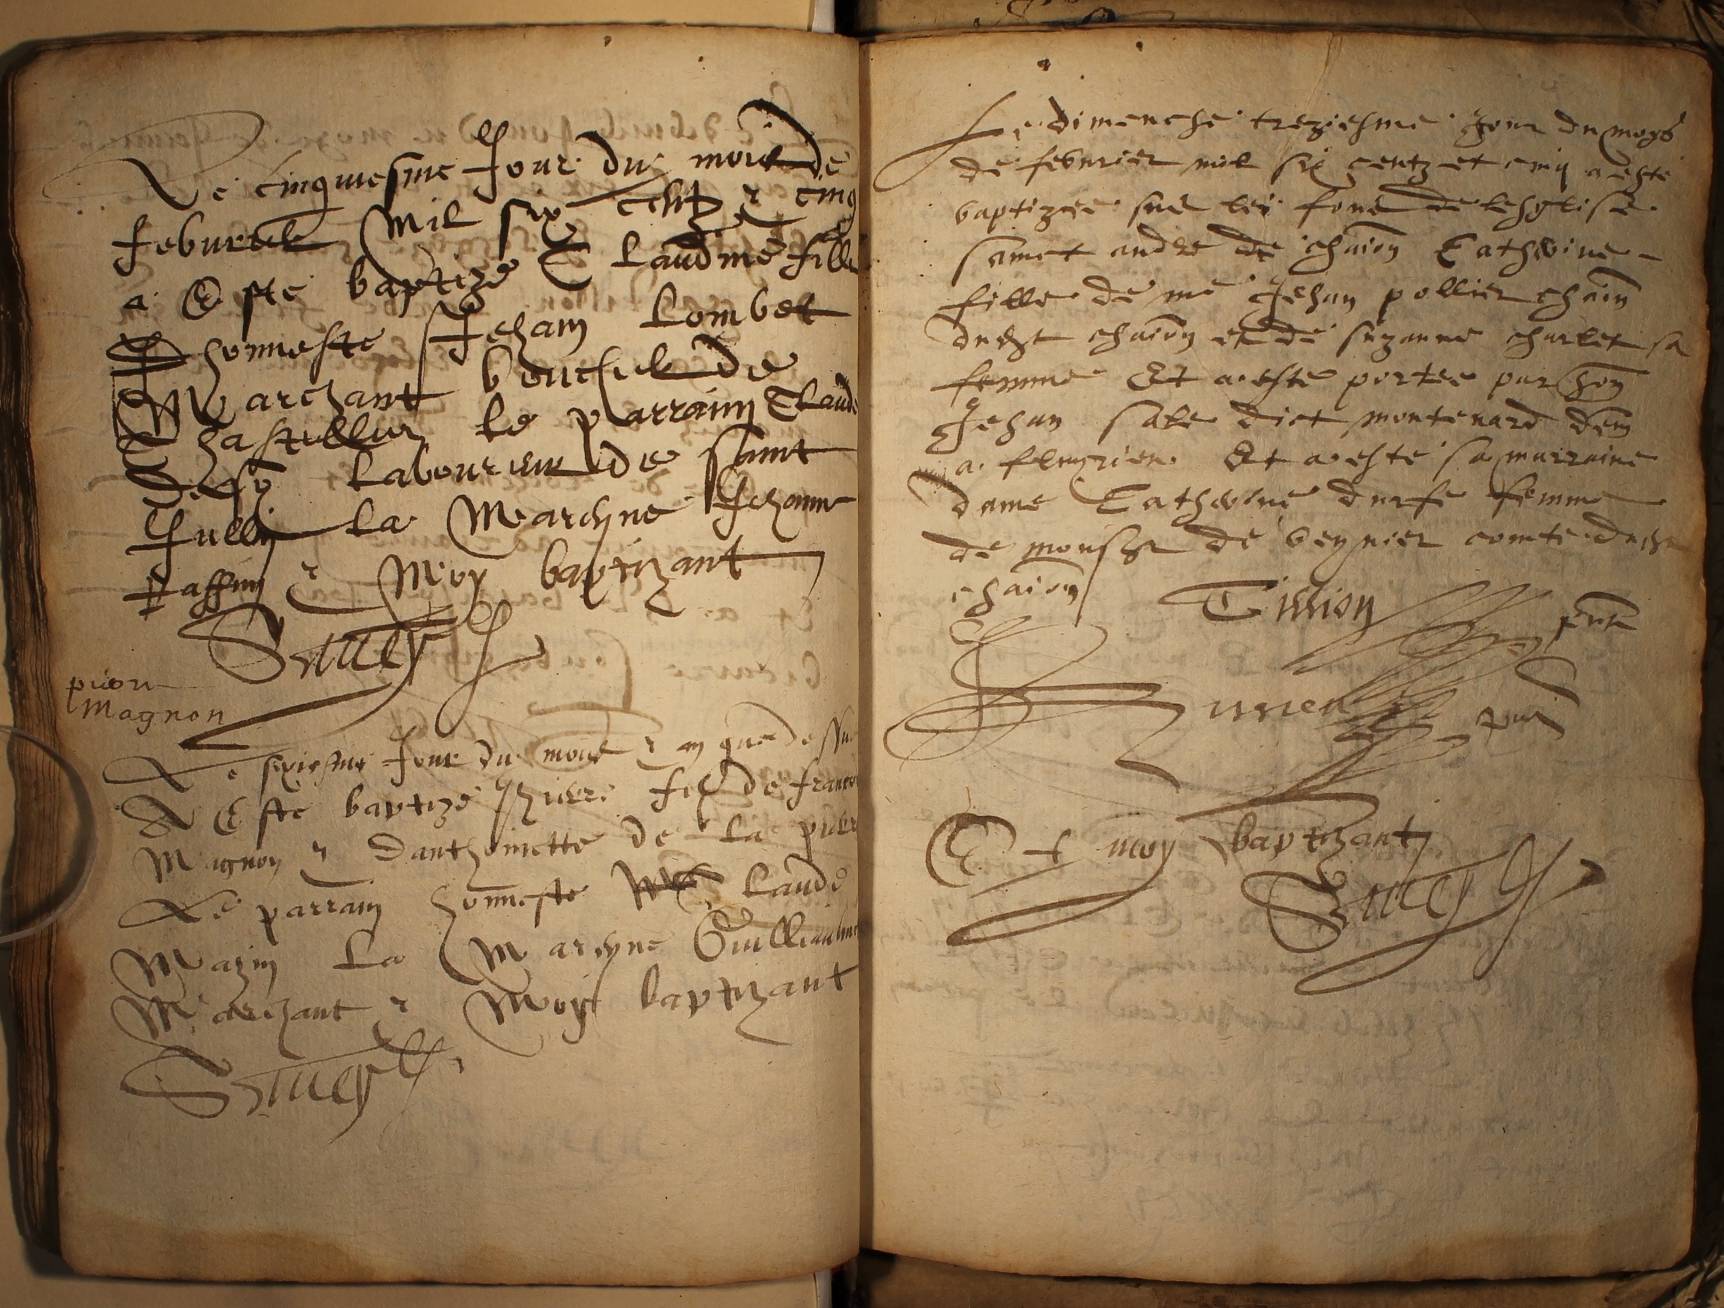 Le cinquiesme Jour du mois de
feburier Mil six centz & cinq
a Este baptize Claudine fille
D honneste Jehan Combet
Marchant boucher de
Chastillon le parrain Claude
laboureur de saint
Jullin la Marayne Jehanne
Raffin & Moy baptizant
pierre
Magnon
Le sixiesme Jour du mois & an que dessus
A Este baptizé pierre filz de francois
Magnon & Danthoinette de la pierre
Le parrain honneste Claude
Mazin la Marayne Guilliaulme
Marchant & Moy baptizant
Le dimenche treziesme Jour du moys
de febvrier mil six centz et cinq a esté
baptizee sur les fons de lesglise
sainct andre de chaion Catherine
fille de me Jehan pollier chain
dudit chaion et de suzanne charlet sa
femme Et a este portee par hon
Jehan sale dict montenard dem
a Et a esté sa marraine
dame Catherine durfe femme
de monsr de veynier comte dudit
chaion Tission pnt
Et moy baptizant